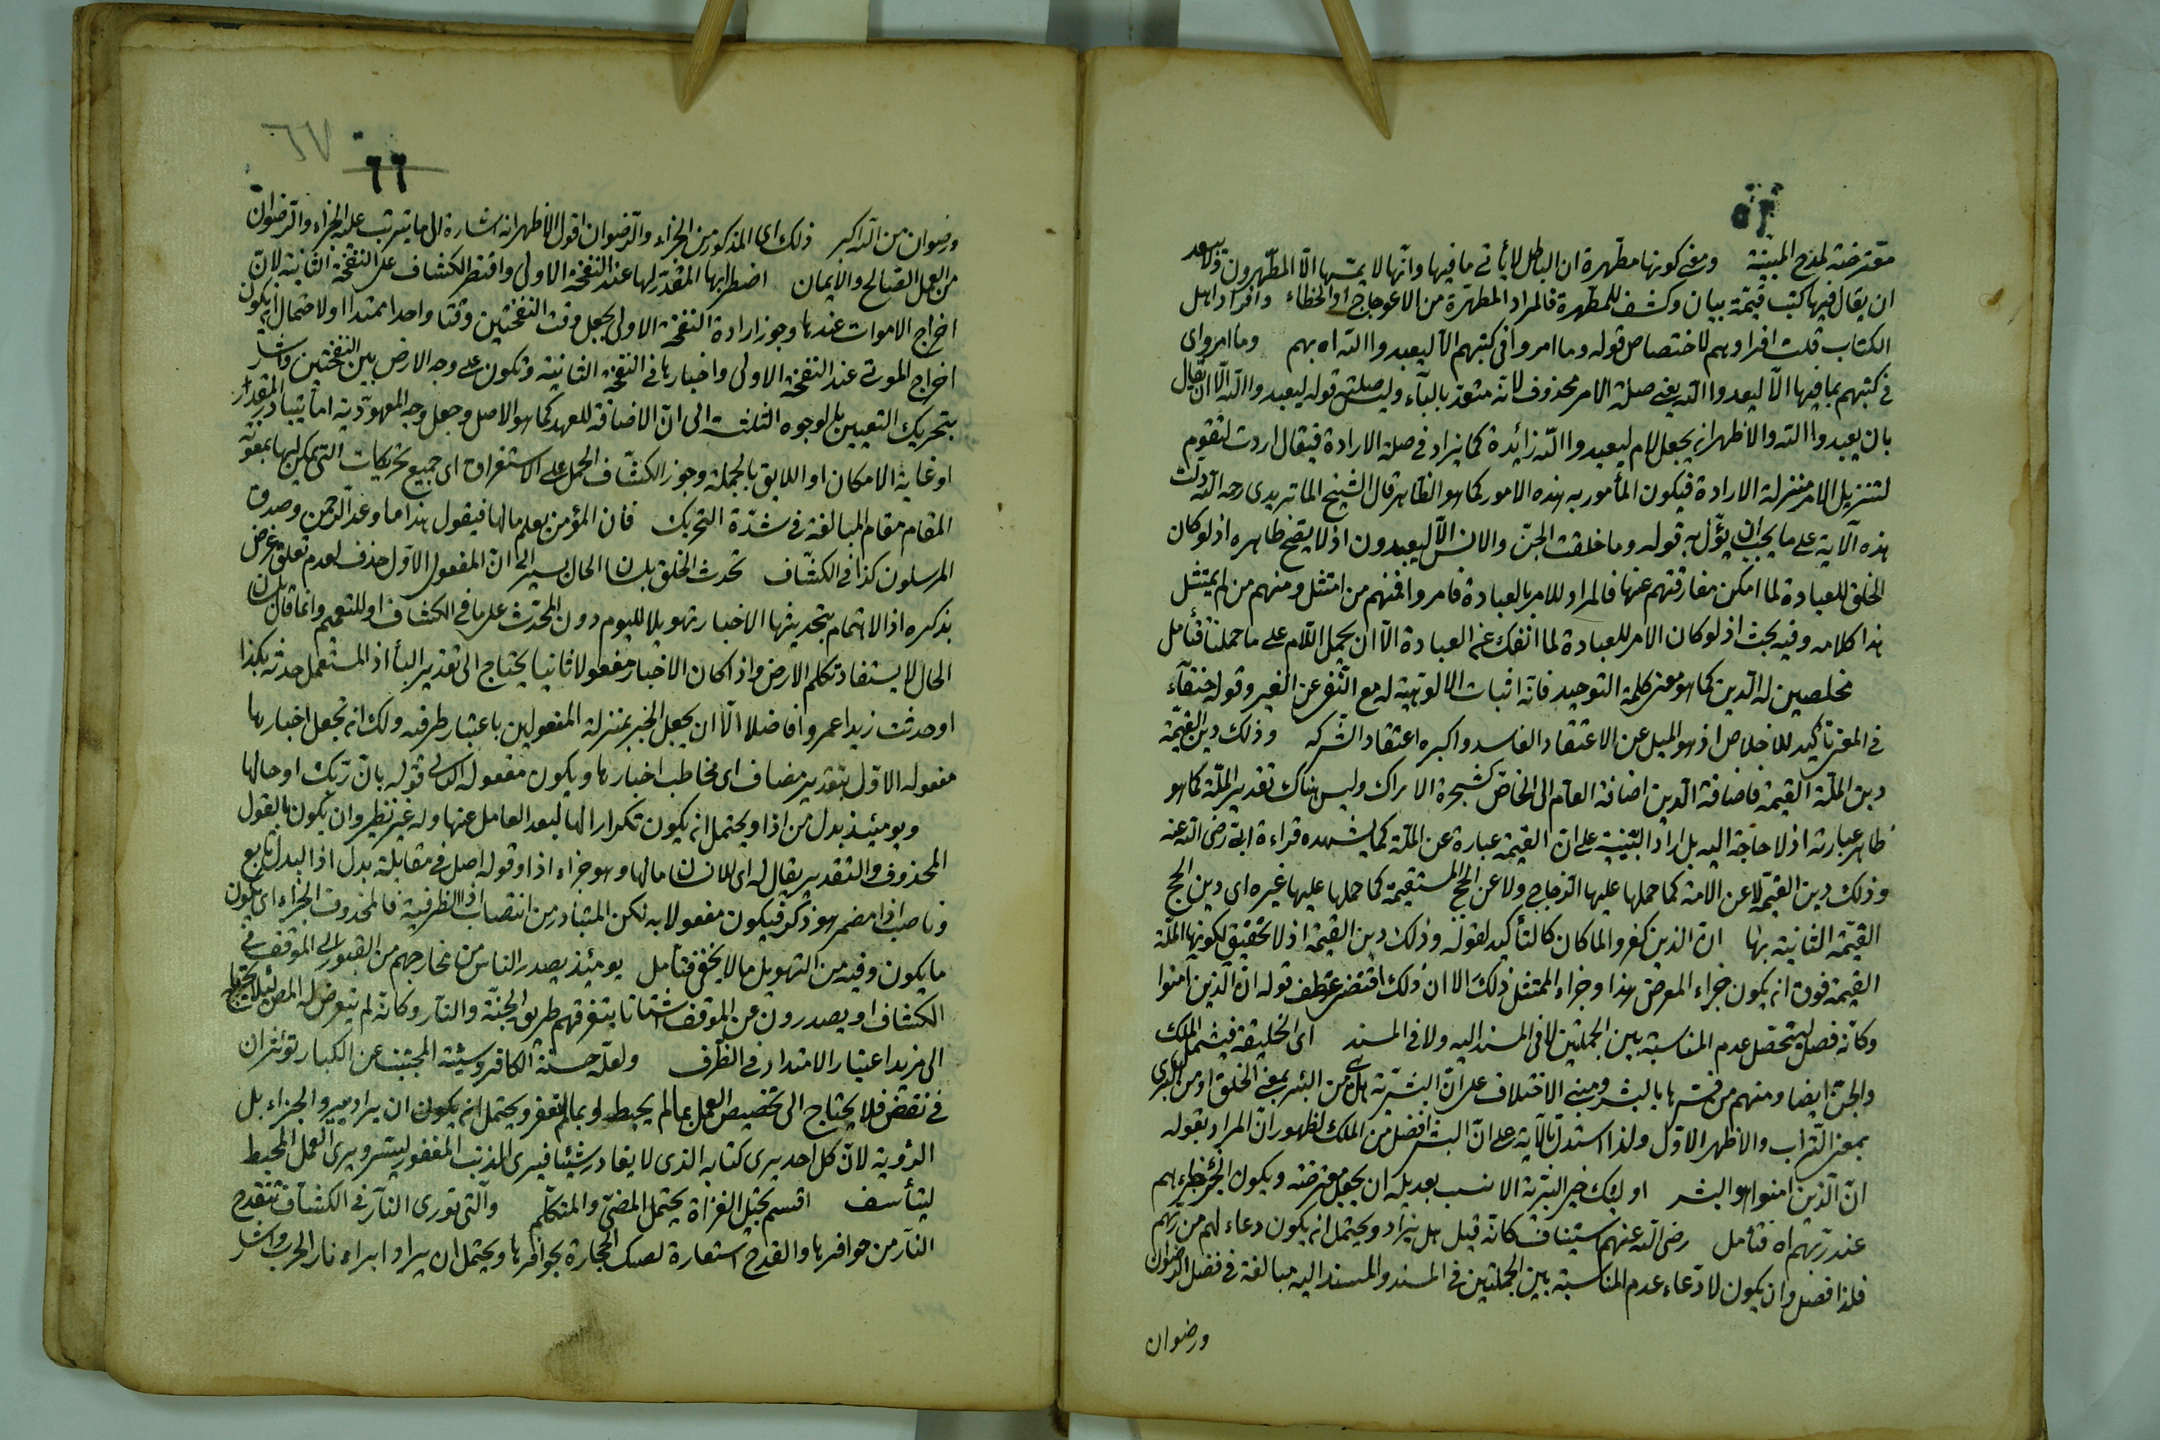 معترضة لمدح المبينة ومعنى كونها مطهرة ان الباطل لا يأتي ما فيها وانها لا يمسها الا المطهرون ولا يبعد
ان يقال فيها كتب قيمة بيان وكشف للمطهرة فالمراد المطهرة من الاعوجاج او الخطاء وافراد اهل
الكتاب قلت افرادهم لاختصاص قوله وما امروا في كتبهم الا ليعبدوا الله اه بهم وما امروا اى
في كتبهم بما فيها الا ليعبدوا الله يعنى صلة الامر محذوف لانه متعد بالباء وليست صلته قوله ليعبدوا الله الا ان يقال
بان يعبدوا الله والاظهر انه يجعل لام ليعبدوا الله زائدة كما يزاد في صلة الارادة فيقال اردت لتقوم
لتنزيل الامر منزلة الارادة فيكون المأمور به هذه الامور كما هو الظاهر قال الشيخ الماتريدى رحمه الله دلت
هذه الآية على ما يجب ان يؤل به قوله وما خلقت الجن والانس الا ليعبدون اذ لا يصح ظاهره اذ لو كان
الخلق للعبادة لما امكن مفارقتهم عنها فالمراد للامر بالعبادة فامروا فمنهم من امتثل ومنهم من لم يمتثل
هذا كلامه وفيه بحث اذ لو كان الامر للعبادة لما انفك عنه العبادة الا ان يحمل اللام على ما حملنا فتأمل
مخلصين له الدين كما هو معنى كلمة التوحيد فانه اثبات الالوهية له مع النفى عن الغير وقوله حنفاء
في المعنى تأكيد للاخلاص اذ هو الميل عن الاعتقاد الفاسد واكبره اعتقاد الشركة وذلك دين القيمة
دين الملة القيمة فاضافة الدين اضافة العام الى الخاص كشجرة الاراك وليس هناك تقدير الملة كما هو
ظاهر عبارته اذ لا حاجة اليه بل اراد التنبيه على ان القيمة عبارة عن الملة كما يشهده قراءة ابى رضى الله عنه
وذلك دين القيمة لا عن الامة كما حملها عليها الزجاج ولا عن الحجج المستقيمة كما حملها عليها غيره اى دين الحجج
القيمة الثانية بها ان الذين كفروا لما كان كالتأكيد لقوله وذلك دين القيمة اذ لا تحقيق لكونها الملة
القيمة فوق انه يكون جزاء المعرض هذا وجزاء الممتثل ذلك الا ان ذلك اقتضى عطف قوله ان الذين امنوا
وكانه فصل ليتحصل عدم المناسبة بين الجملتين لا في المسند اليه ولا في المسند اى الخليقة فيشمل الملك
والجن ايضا ومنهم من فسرها بالبشر ومبنى الاختلاف على ان البشرية هل هى من البرء بمعنى الخلق او من البرى
بمعنى التراب والاظهر الاول ولذا استدل بالآية على ان البشر افضل من الملك لظهور ان المراد بقوله
ان الذين امنوا هو البشر اولئك خير البرية الانسب بعديله ان يجعل معترضة ويكون الخبر جزاءهم
عند ربهم اه فتأمل رضى الله عنهم استيناف كانه قيل هل يزاد ويحتمل انه يكون دعاء لهم من ربهم
فلذا فصل وان يكون لادعاء عدم المناسبة بين الجملتين في المسند والمسند اليه مبالغة في فضل الرضوان
ورضوان
٦٧
٦٦
ورضوان من الله اكبر ذلك اى المذكور من الجزاء والرضوان اقول الاظهر انه اشارة الى ما يترتب عليه الجزاء والرضوان
من العمل الصالح والايمان اضطرابها المقدر لها عند النفخة الاولى واقتصر الكشاف على النفخة الثانية لان
اخراج الاموات عندها وجوز ارادة النفخة الاولى بجعل وقت النفختين وقتا واحدا ممتدا او لاحتمال انه يكون
اخراج الموتى عند النفخة الاولى واخبارها في النفخة الثانية وتكون على وجه الارض بين النفختين واشار
بتحريك التعيين بالوجوه الثلثة الى ان الاضافة للعهد كما هو الاصل وجعل وجه المعهودية اما يتبادر المقدار
او غاية الامكان او اللايق بالجملة وجوز الكشاف الحمل على الاستغراق اى جميع تحريكات التى يمكن لها بمعونة
المقام مقام المبالغة في شدة التحريك فان المؤمن يعلم مالها فيقول هذا ما وعد الرحمن وصدق
المرسلون كذا في الكشاف تحدث الخلق بلسان الحال يشير الى ان المفعول الاول حذف لعدم تعلق غرض
بذكره اذ الاهتمام بتحديثها الاخبار تهويلا لليوم دون المحدث على ما في الكشاف او للتعميم وانما قال بلسان
الحال لا يستفاد تكلم الارض واذا كان الاخبار مفعولا ثانيا يحتاج الى تقدير الباء اذ المستعمل حدثه بكذا
او حدثت زيدا عمروا فاضلا الا ان يجعل الخبر بمنزلة المفعولين باعتبار طرفيه ولك انه تجعل اخبارها
مفعوله الاول بتقدير مضاف اى مخاطب اخبارها ويكون مفعوله الثانى قوله بان ربك اوحى لها
ويومئذ بدل من اذا ويحتمل انه يكون تكرارا لها لبعد العامل عنها وله غير نظير وان يكون بالقول
المحذوف والتقدير يقال له اى للانسان مالها وهو جزاء اذا وقوله اصل في مقابلة بدل اذ البدل تابع
وناصب اذا مضمر هو ذكر فيكون مفعولا به لكن المتبادر من انتصاب اذا الظرفية فالمحذوف الجزاء اى يكون
ما يكون وفيه من التهويل ما لا يخفى فتأمل يومئذ يصدر الناس من مخارجهم من القبور الى الموقف في
الكشاف او يصدرون عن الموقف اشتاتا يتفرقهم طريق الجنة والنار وكانه لم يتعرض له المص لئلا يحتاج
الى مزيد اعتبار الامتداد في الظرف ولعله حسنة الكافر وسيئة المجتنب عن الكبائر تؤثران
في نقص فلا يحتاج الى تخصيص العمل بما لم يحبط او بما لم يغفر ويحتمل انه يكون ان يراد بيره الجزاء بل
الرؤية لان كل احد يرى كتابه الذى لا يغادر شيئا فيرى المذنب المغفور ليسر ويرى العمل المحبط
ليتأسف اقسم بخيل الغزاة يحتمل المضى والمتكلم والتى تورى النار في الكشاف تنقدح
النار من حوافرها والقدح استعارة لصك الحجارة بحوافرها ويحتمل ان يراد ايراء نار الحرب واشار